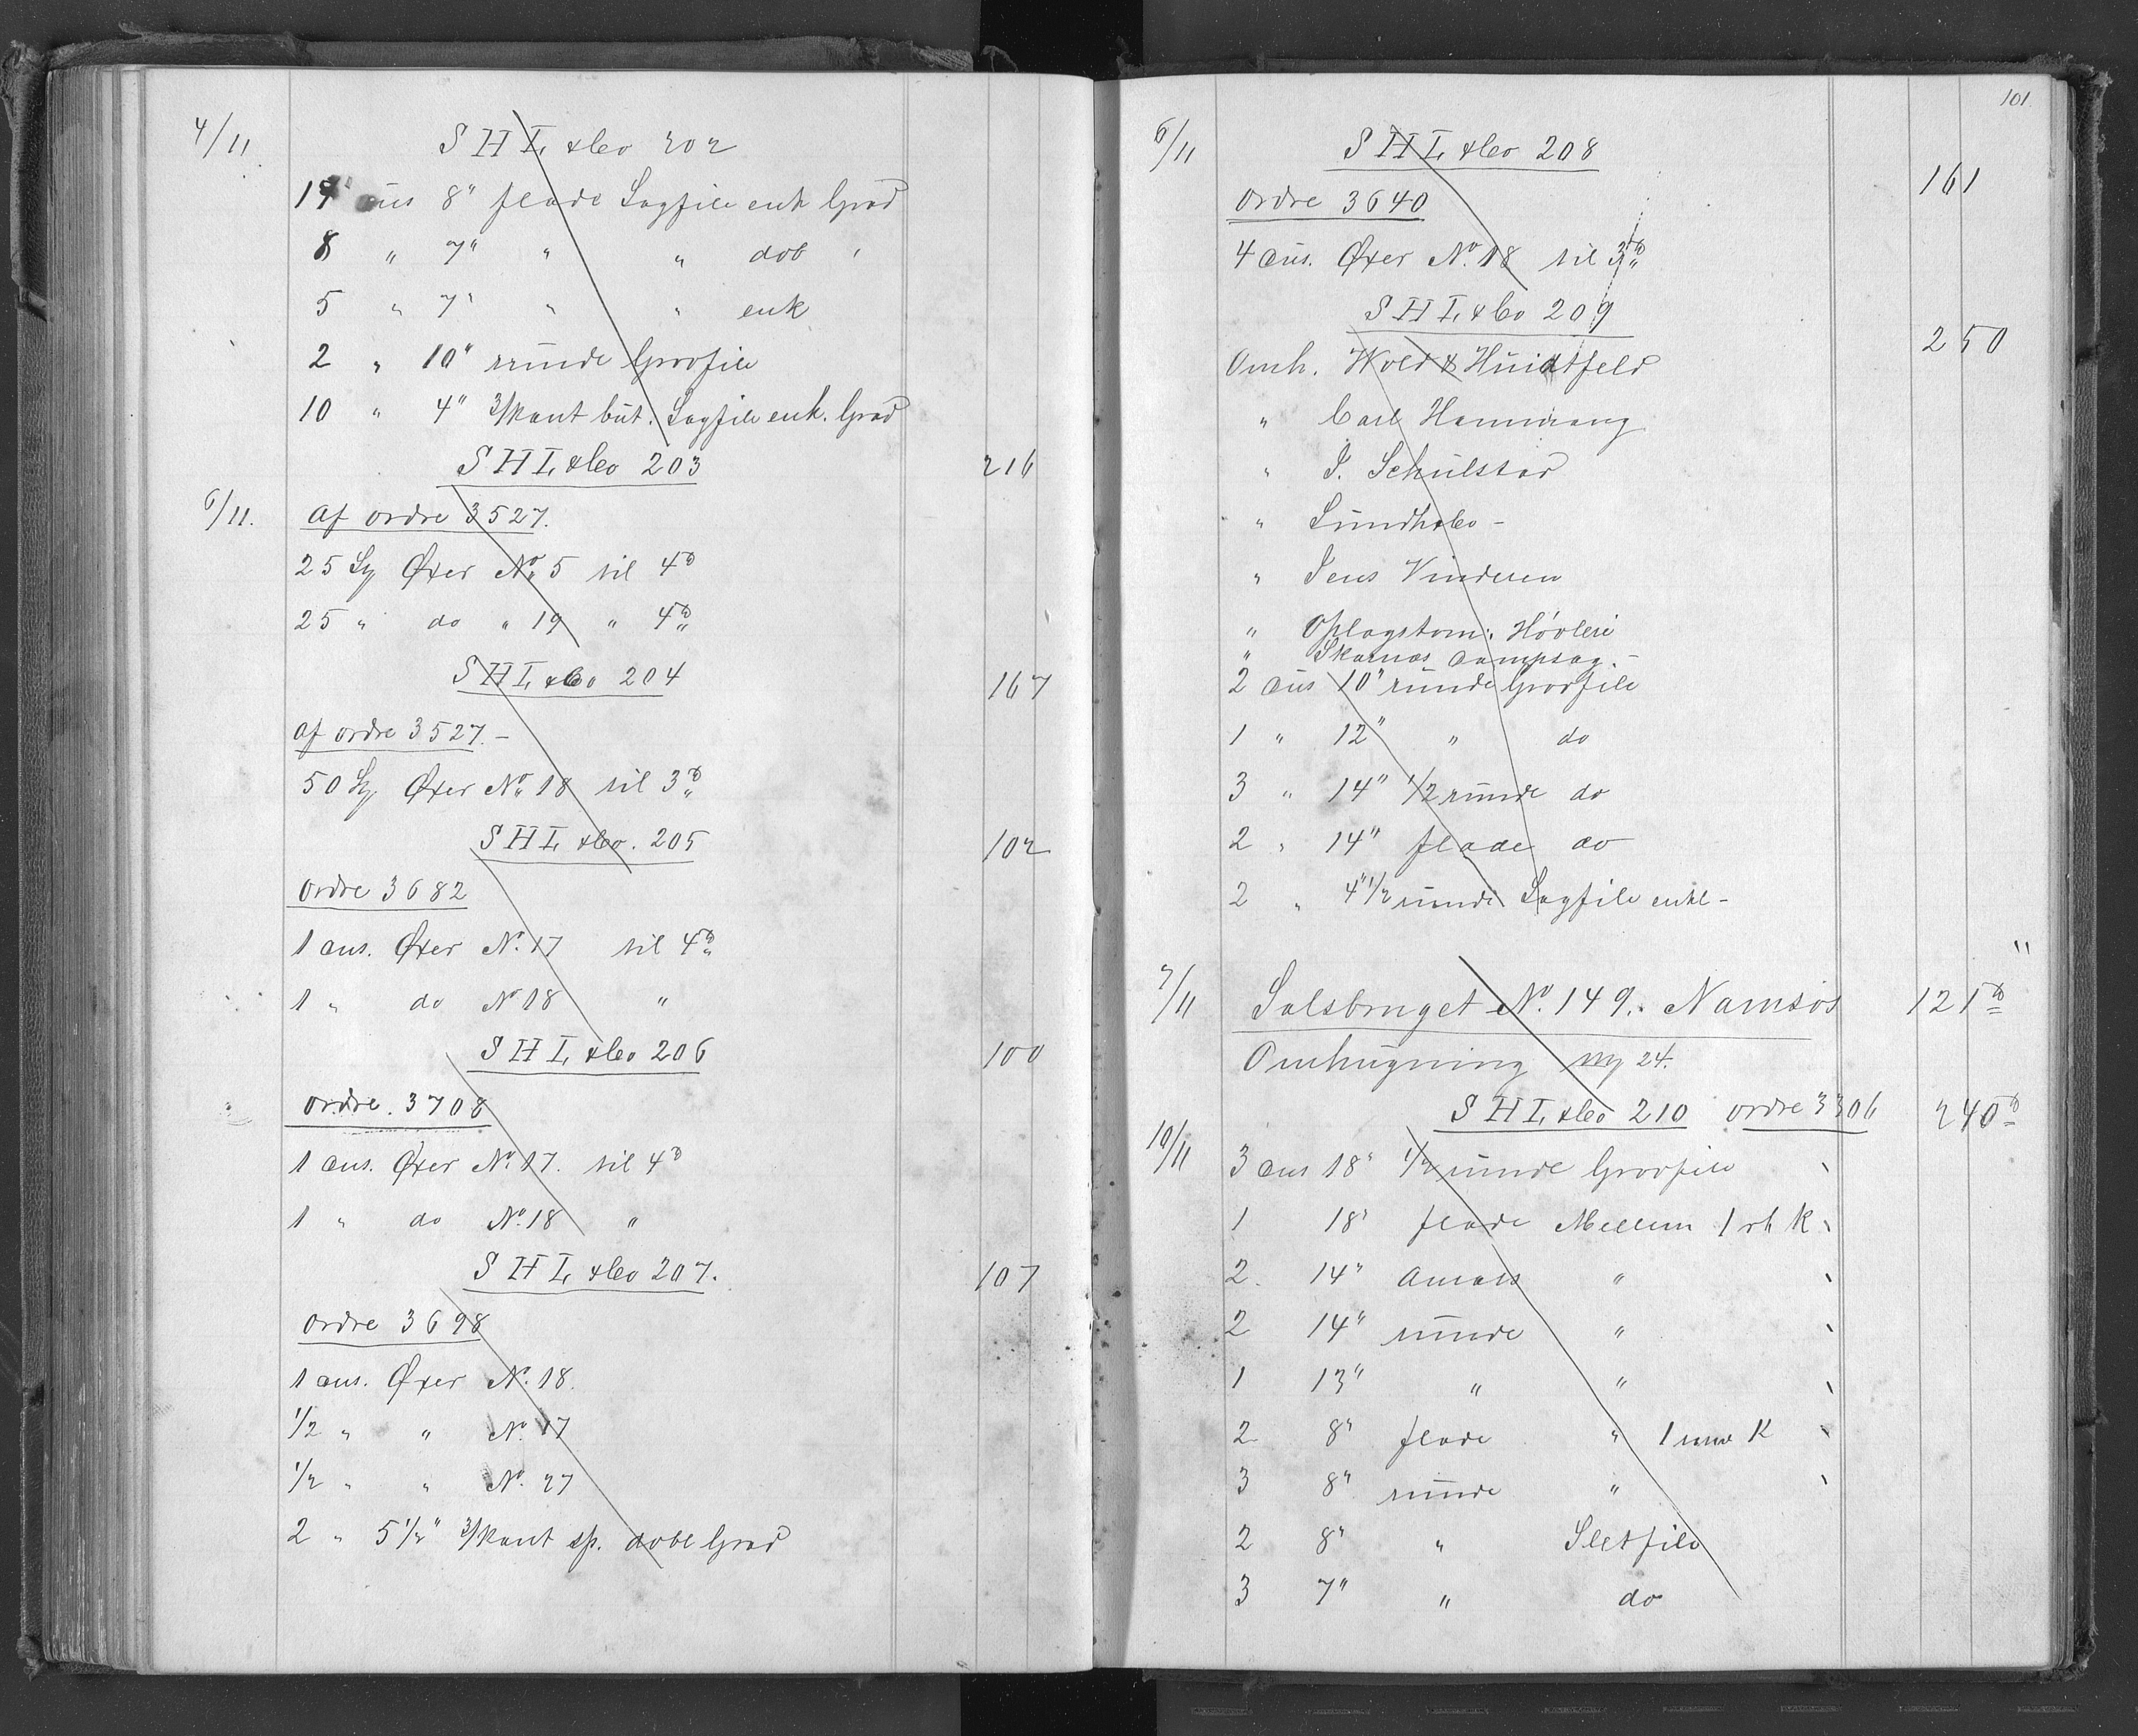 4/11 S H L & Co 202
17 dus 8" flade Sagfile enk Grad
8 " 7" " " dob "
5 " 7" " " enk
2 " 10" runde Grovfile
10 " 4" 3/kant but. Sagfile enk. Grad
S H L & Co 203 216
6/11. af ordre 3527.
25 Øxer No. 5 til 4
25 " do " 19 " 4
S H L & Co 204 167
af ordre 3527.-
50 Øxer No. 18 til 3
S H L & Co. 205 102
Ordre 3682
1 dus. Øxer No. 17 til 4
1 " do No 18 "
S H L & Co 206 100
ordre. 3708
1 dus. Øxer No. 17. til 4
1 " do No. 18 "
S H L & Co 207. 107
ordre 3698
1 dus. Øxer No. 18.
1/2 " " No. 17
1/2 " " No. 27
2 " 5 1/2" 3/kant sp. dobl Grad
101
6/11 S H L & Co 208
161
Ordre 3640
4 dus. Øxer No. 18 til 3
S H L & Co 209
250
Omh. Wold & Huidtfeld
" Carl
" J. Schulstad
" Lundh & Co -
" Jens Vinderen
" Oplagstom. Høvleri
" Skarnæs Dampsag.-
2 dus 10" runde Grovfile
1 " 12" " do
3 " 14" 1/2 runde do
2 " 14" flade do
2 " 4" 1/2 runde Sagfile enkl-
7/11 Salsbruget No. 149. Namsos 121
Omhugning 24.
S H L & Co 210 ordre 3306 240
10/11 3 dus 18" 1/2 runde Grovfile
1 18" flade Mellem 1 rh K
2. 14" "
2 14" runde "
1 13" " "
2 8" flade " 1 K
3 8" runde "
2 8" " Sletfile
3 7" " do